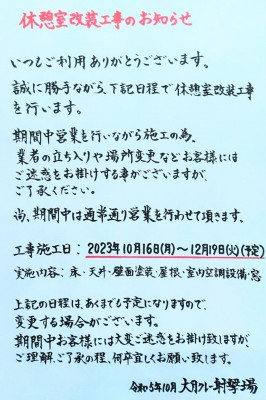 休憩室改装工事のお知らせ
いつもご利用ありがとうございます。
誠に勝手ながら、下記日程で休憩室改装工事
を行います。
期間中営業を行いながら施工の為、
業者の立ち入りや場所変更などお客様には
ご迷惑をお掛けする事がございますが、
ご了承ください。
尚、期間中は通常通り営業を行わせて頂きます。
工事施工日：2023年10月16日(月)～12月19日(火)(予定)
実施内容：床・天井・壁面塗装・屋根・室内空調設備・窓
上記の日程は、あくまでも予定になりますので、
変更する場合がございます。
期間中お客様には大変ご迷惑をお掛け致しますが、
ご理解、ご了承の程、何卒宜しくお願い致します。
令和5年10月 大月クレー射撃場